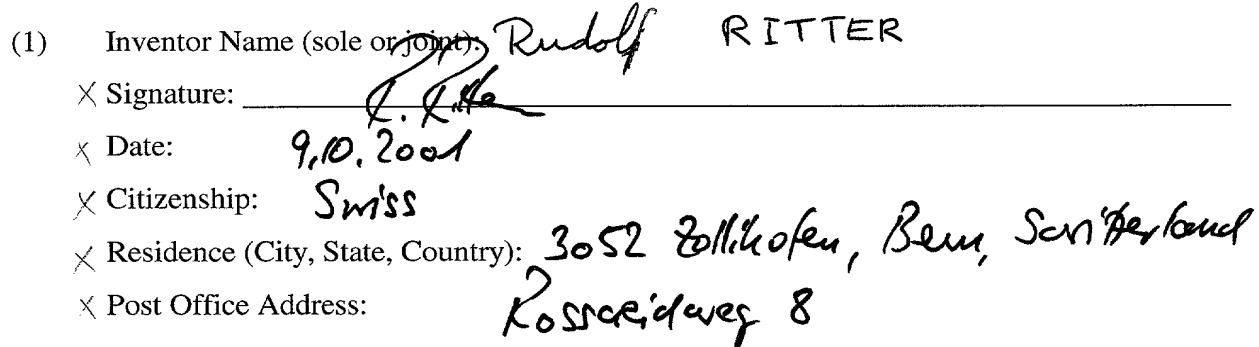 (1) Inventor Name (sole or joint): Rudolf RITTER
X Signature: R. Ritter
X Date: 9.10.2001
X Citizenship: Swiss
X Residence (City, State, Country): 3052 Zollikofen, Bern, Switzerland
X Post Office Address: 8